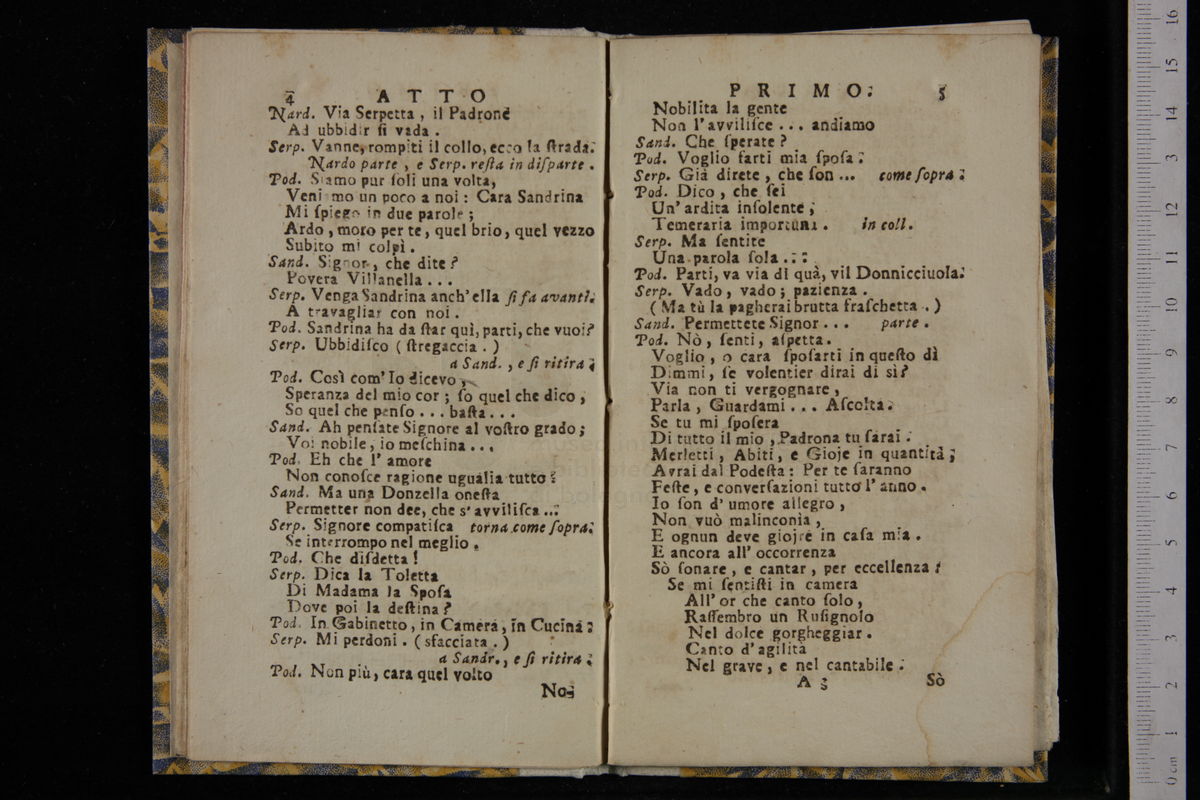 4 ATTO
Nard. Via Serpetta, il Padrone
Ad ubbidir ſi vada.
Serp. Vanne, rompiti il collo, ecco la ſtrada.
Nardo parte, e Serp. reſta in diſparte.
Pod. Siamo pur ſoli una volta,
Veniamo un poco a noi: Cara Sandrina
Mi ſpiego in due parole;
Ardo, moro per te, quel brio, quel vezzo
Subito mi colpì.
Sand. Signor, che dite?
Povera Villanella...
Serp. Venga Sandrina anch'ella ſi fa avanti.
A travagliar con noi.
Pod. Sandrina ha da ſtar quì, parti, che vuoi?
Serp. Ubbidiſco (ſtregaccia.)
a Sand., e ſi ritira.
Pod. Così com' Io dicevo,
Speranza del mio cor; ſo quel che dico,
So quel che penſo... baſta...
Sand. Ah penſate Signore al voſtro grado;
Voi nobile, io meſchina...
Pod. Eh che l' amore
Non conoſce ragione ugualia tutto.
Sand. Ma una Donzella oneſta
Permetter non dee, che s'avviliſca...
Serp. Signore compatiſca torna come ſopra.
Se interrompo nel meglio.
Pod. Che diſdetta!
Serp. Dica la Toletta
Di Madama la Spoſa
Dove poi la deſtina?
Pod. In Gabinetto, in Camera, in Cucina.
Serp. Mi perdoni. (sfacciata.)
a Sandr., e ſi ritira.
Pod. Non più, cara quel volto
No-
PRIMO. 5
Nobilita la gente
Non l'avviliſce... andiamo
Sand. Che ſperate?
Pod. Voglio farti mia ſpoſa.
Serp. Già direte, che ſon... come ſopra.
Pod. Dico, che ſei
Un' ardita inſolente,
Temeraria importuna. in coll.
Serp. Ma ſentite
Una parola ſola...
Pod. Parti, va via di quà, vil Donnicciuola.
Serp. Vado, vado; pazienza.
(Ma tù la pagherai brutta fraſchetta.)
Sand. Permettete Signor... parte.
Pod. Nò, ſenti, aſpetta.
Voglio, o cara ſpoſarti in queſto dì
Dimmi, ſe volentier dirai di sì?
Via non ti vergognare,
Parla, Guardami... Aſcolta.
Se tu mi ſpoſera
Di tutto il mio, Padrona tu ſarai.
Merletti, Abiti, e Gioje in quantità;
Avrai dal Podeſta: Per te ſaranno
Feſte, e converſazioni tutto l' anno.
Io ſon d' umore allegro,
Non vuò malinconia,
E ognun deve giojre in caſa mia.
E ancora all' occorrenza
Sò ſonare, e cantar, per eccellenza.
Se mi ſentiſti in camera
All' or che canto ſolo,
Raſſembro un Ruſignolo
Nel dolce gorgheggiar.
Canto d' agilita
Nel grave, e nel cantabile.
A 3 Sò